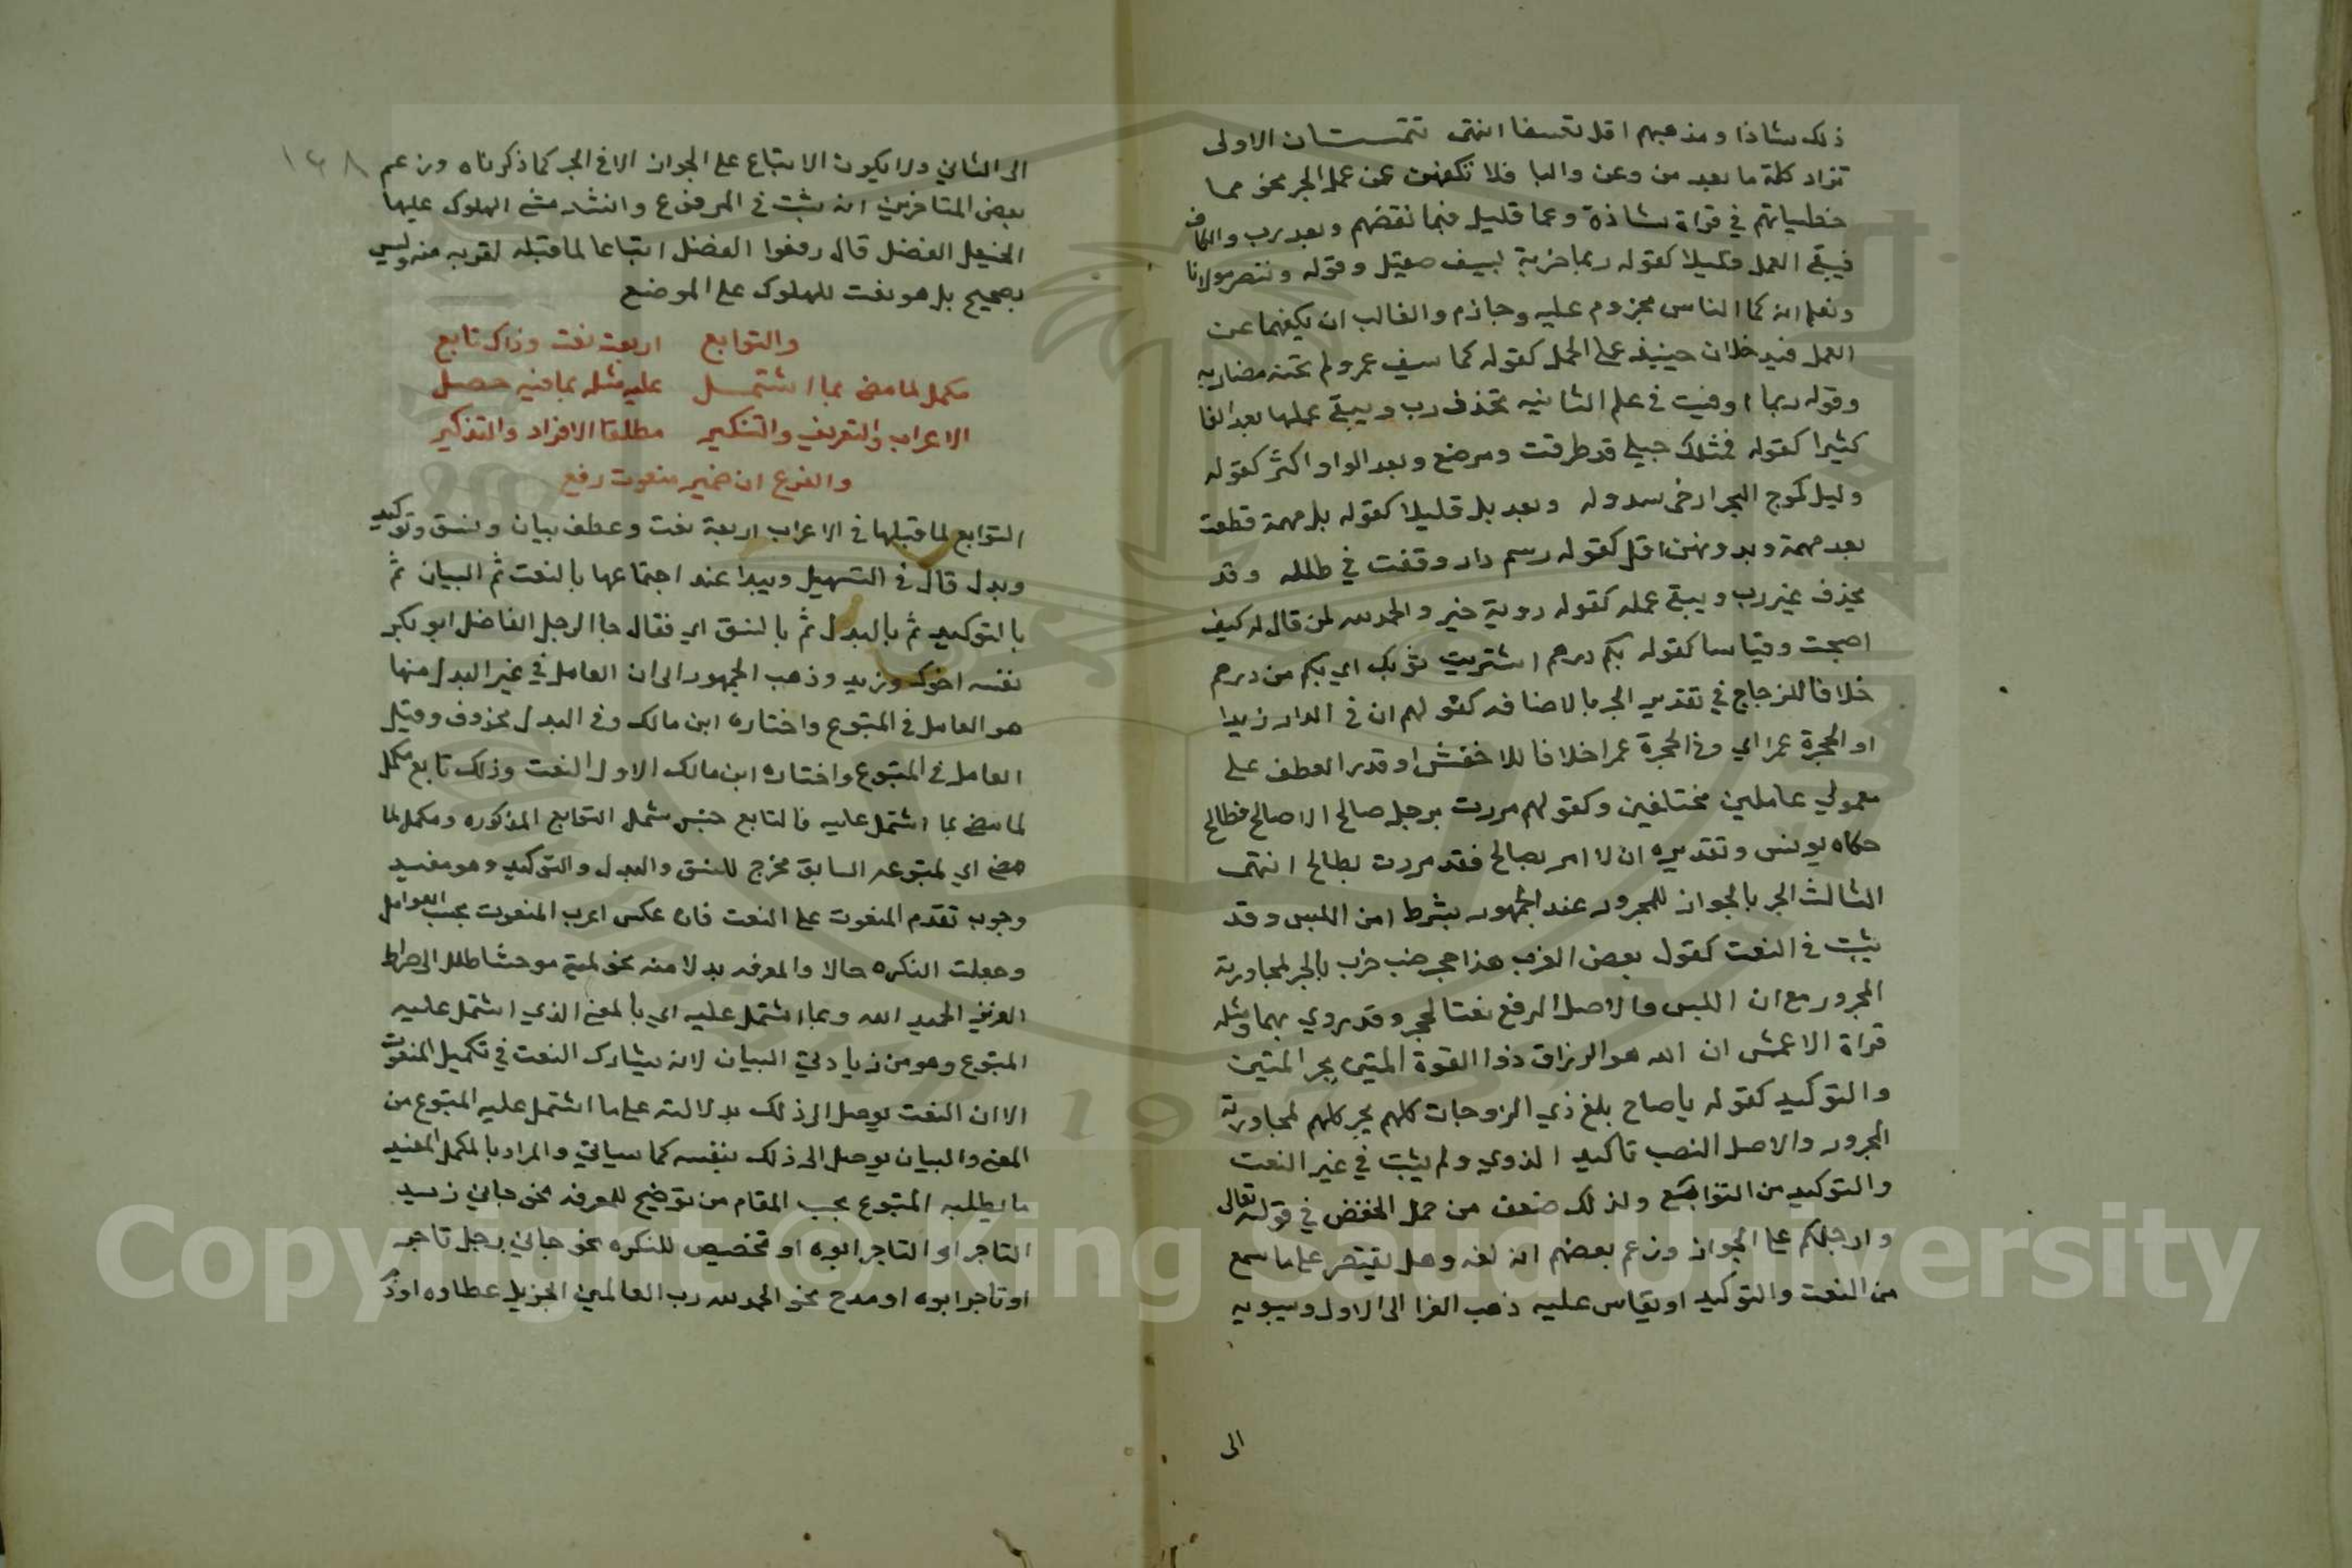 ذلك شاذا ومذهبهم اقل تعسفا انتهى تتمتان الاولى
تزاد كلمة ما بعد من وعن والبا فلا تكفهن عن عمل الجر نحو مما
خطياتهم في قراة شاذة وعما قليل فبما نقضهم وبعد رب والكاف
فيبقى العمل قليلا كقوله ربما ضربة بسيف صقيل وقوله وننصر مولانا
ونعلم انه كما الناس مجزوم عليه وجازم والغالب ان يكفهما عن
العمل فيدخلان حينيذ على الجمل كقوله كما سيف عمرو لم تخنه مضاربه
وقوله ربما اوفيت في علم الثانيه تحذف رب ويبقى عملها بعد الفا
كثيرا كقوله فمثلك حبلى قد طرقت ومرضع وبعد الواو اكثر كقوله
وليل كموج البحر ارخى سدوله وبعد بل قليلا كقوله بل مهمة قطعت
بعد مهمة وبدونهن اقل كقوله رسم دار وقفت في طلله وقد
يحذف غير رب ويبقى عمله كقوله روبة خير والحمد لله لمن قال له كيف
اصبحت وقياسا كقوله بكم درهم اشتريت ثوبك اي بكم من درهم
خلافا للزجاج في تقدير الجر بالاضافه كقولهم ان في الدار زيدا
او الحجرة عمرا اي وفي الحجرة عمرا خلافا للاخفش اذ قدر العطف على
معمولي عاملين مختلفين وكقولهم مررت برجل صالح الا صالح فطالح
حكاه يونس وتقديره ان لا امر بصالح فقد مررت بطالح انتهى
الثالث الجر بالجوار للمجرور عند الجمهور بشرط امن اللبس وقد
يثبت في النعت كقول بعض العرب هذا حجر ضب خرب بالجر لمجاورته
المجرور مع ان اللبس والاصل الرفع نعتا لحجر وقد روي بهما ومثله
قراة الاعمش ان الله هو الرزاق ذوا القوة المتين بجر المتين
والتوكيد كقوله يا صاح بلغ ذي الزوجات كلهم بجر كلهم لمجاورته
المجرور والاصل النصب تاكيد الذوي ولم يثبت في غير النعت
والتوكيد من التوابع ولذلك ضعف من حمل الخفض في قوله تعالى
وارجلكم على الجوار وزعم بعضهم انه لغه وهل يقتصر على ما سمع
من النعت والتوكيد او يقاس عليه ذهب الفرا الى الاول وسيبويه
الى
١٤٨
الى الثاني ولا يكون الاتباع على الجوار الا في الجر كما ذكرناه وزعم
بعض المتاخرين انه يثبت في المرفوع وانشد مشي الهلوك عليها
الخيعل الفضل قال رفعوا الفضل اتباعا لما قبله لقربه منه وليس
بصحيح بل هو نعت للهلوك على الموضع
والتوابع اربعة نعت وذاك تابع
مكمل لما مضى بما اشتمل عليه مثله بما فيه حصل
الاعراب والتعريف والتنكير مطلقا الافراد والتذكير
والفرع ان ضمير منعوت رفع
التوابع لما قبلها في الاعراب اربعة نعت وعطف بيان ونسق وتوكيد
وبدل قال في التسهيل ويبدا عند اجتماعها بالنعت ثم البيان ثم
بالتوكيد ثم بالبدل ثم بالنسق اي فقال جا الرجل الفاضل ابو بكر
نفسه اخوك وزيد وذهب الجمهور الى ان العامل في غير البدل منها
هو العامل في المتبوع واختاره ابن مالك وفي البدل محذوف وقيل
العامل في المتبوع واختاره ابن مالك الاول النعت وذلك تابع مكمل
لما مضى بما اشتمل عليه فالتابع جنس يشمل التوابع المذكوره ومكمل لما
مضى اي لمتبوعه السابق مخرج للنسق والبدل والتوكيد وهو مفيد
وجوب تقدم المنعوت على النعت فان عكس اعرب المنعوت بحسب العوامل
وجعلت النكره حالا والمعرفه بدلا منه نحو لمية موحشا طلل الى صراط
العزيز الحميد الله وبما اشتمل عليه اي بالمعنى الذي اشتمل عليه
المتبوع وهو من زيادتي البيان لانه يشارك النعت في تكميل المنعوت
الا ان النعت يوصل الى ذلك بدلالته على ما اشتمل عليه المتبوع من
المعنى والبيان يوصل الى ذلك بنفسه كما سياتي والمراد بالمكمل المفيد
ما يطلبه المتبوع بحسب المقام من توضيح للمعرفه نحو جاني زيد
التاجر او التاجر ابوه او تخصيص للنكره نحو جاني رجل تاجر
او تاجر ابوه او مدح نحو الحمد لله رب العالمين الجزيل عطاوه اوذم
Copyright © King Saud University